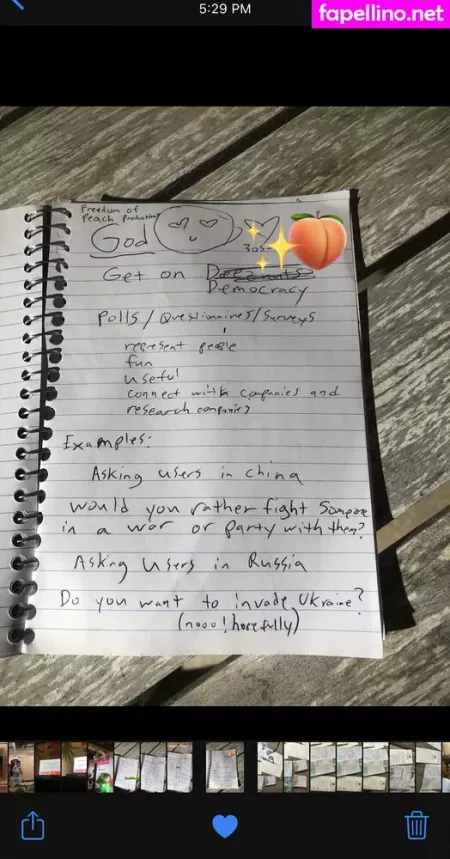 5:29 PM
fapellino.net
Freedom of
Peach Productions
God
305
Get on Deeznuts
Democracy
Polls/Questionaires/Surveys
represent people
fun
useful
connect with companies and
research companies
Examples:
Asking users in China
would you rather fight someone
in a war or party with them?
Asking users in Russia
Do you want to invade Ukraine?
(nooo! hopefully)